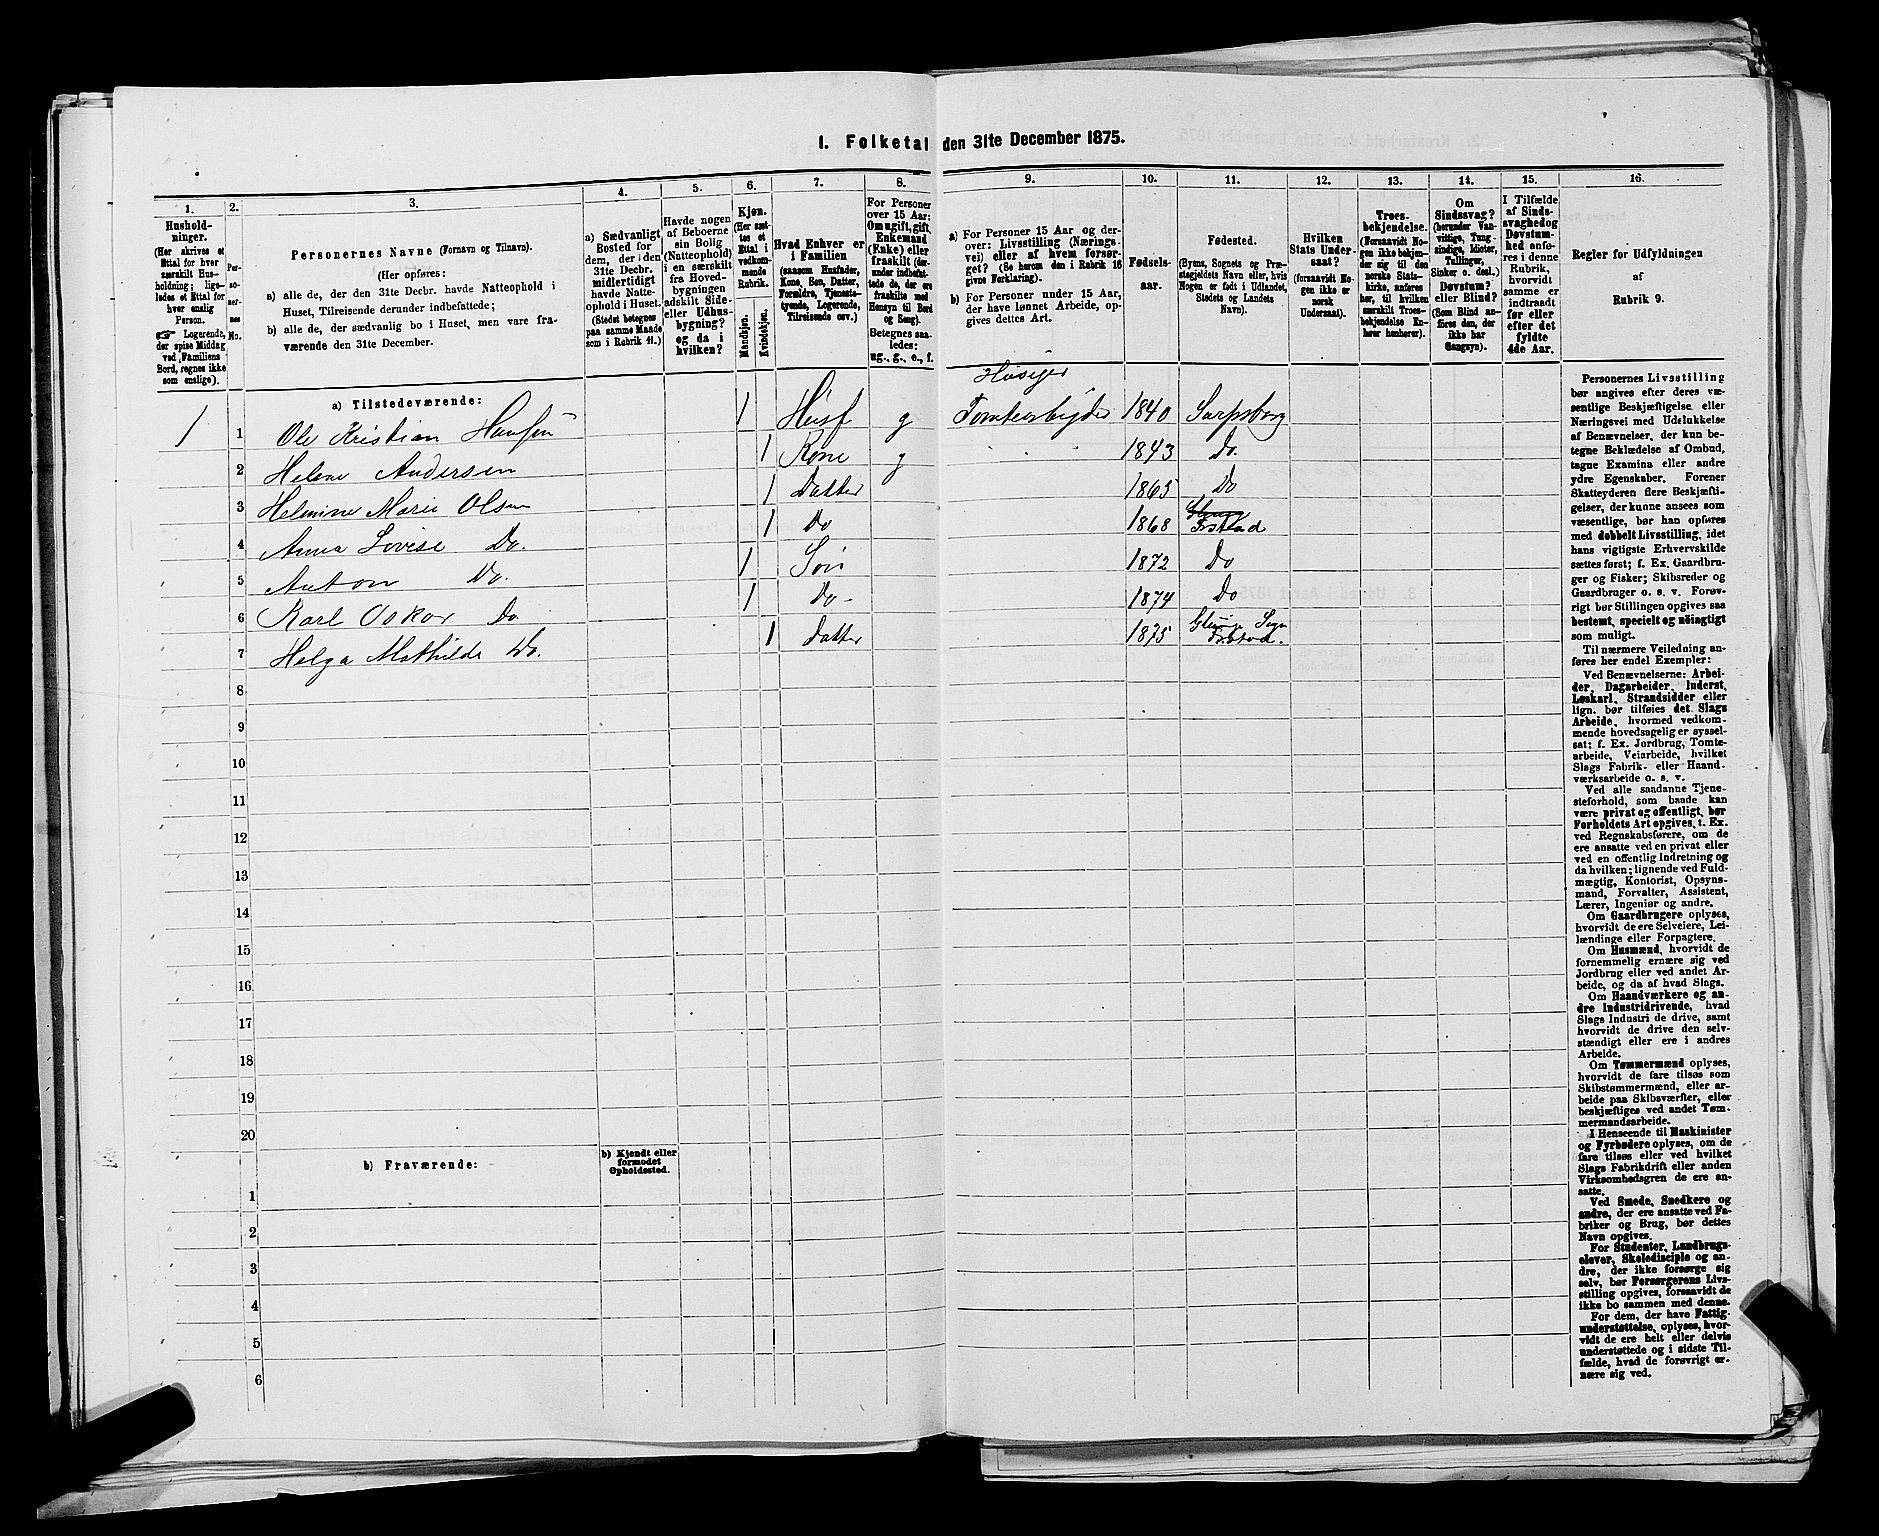 1. Folketal den 31te December 1875.
1. 2. 3. 4. 5. 6. 7. 8. 9. 10. 11. 12. 13. 14. 15. 16.
Hushold-
ninger.
(Her skrives et
Ettal for hver
særskilt Hus-
holdning; lige-
ledes et Ettal for
hver enslig
Person.
☞ Logerende,
der spise Middag
ved Familiens
Bord, regnes ikke
som enslige).
Per-
so-
ner-
nes
No.
Personernes Navne (Fornavn og Tilnavn).
(Her opføres:
a) alle de, der den 31te Decbr. havde Natteophold i
Huset, Tilreisende derunder indbefattede;
b) alle de, der sædvanlig bo i Huset, men vare fra-
værende den 31te December.
a) Sædvanligt
Bosted for
dem, der i den
31te Decbr.
midlertidigt
havde Natte-
ophold i Huset.
(Stedet betegnes
paa samme Maade
som i Rubrik 11.)
Havde nogen
af Beboerne
sin Bolig
(Natteophold)
i en særskilt
fra Hoved-
bygningen
adskilt Side-
eller Udhus-
bygning?
og da i
hvilken?
Kjøn.
(Her sæt-
tes et
Ettal i
vedkom-
mende
Rubrik.
Mandkjøn.
Kvindekjøn.
Hvad Enhver er
i Familien
(saasom Husfader,
Kone, Søn, Datter,
Forældre, Tjeneste-
tyende, Logerende,
Tilreisende osv.)
For Personer
over 15 Aar:
Om ugift, gift,
Enkemand
(Enke) eller
fraskilt (der-
under indbefat-
tede de, der ere
fraskilte med
Hensyn til Bord
og Seng).
Betegnes saa-
ledes:
ug., g., e., f.
a) For Personer 15 Aar og der-
over: Livsstilling (Nærings-
vei) eller af hvem forsør-
get? (Se herom den i Rubrik 16
givne Forklaring).
b) For Personer under 15 Aar,
der have lønnet Arbeide, op-
gives dettes Art.
Fødsels-
aar.
Fødested.
(Byens, Sognets og Præ-
stegjeldets Navn eller, hvis
Nogen er født i Udlandet,
Stedets og Landets
Navn).
Hvilken
Stats Under-
saat?
(forsaavidt No-
gen ikke er
norsk
Undersaat).
Troes-
bekjendelse.
(Forsaavidt No-
gen ikke bekjen-
der sig til den
norske Stats-
kirke, anføres
her, til hvilken
særskilt Troes-
bekjendelse En-
hver henhører).
Om
Sindssvag?
(herunder Van-
vittige, Tung-
sindige, Idioter,
Tullinger,
Sinker o. desl.)
Døvstum?
eller Blind?
(Som Blind an-
føres den, der
ikke har
Gangsyn).
I Tilfælde
af Sinds-
svaghed og
Døvstum-
hed anfø-
res i denne
Rubrik,
hvorvidt
samme er
indtraadt
før eller
efter det
fyldte
4de Aar.
Regler for Udfyldningen
af
Rubrik 9.
a) Tilstedeværende:
Huseier
1 1 Ole Kristian Hansen 1 Husf g Tomtearbeyder 1840 Sarpsborg
2 Helene Andersen 1 Kone g 1843 Do.
3 Helmine Marie Olsen 1 Datter 1865 Do
4 Anna Lovise Do. 1 Do 1868 Glemge Trstad
5 Anton Do. 1 Søn 1872 Do
6 Karl Oskar Do 1 Do 1874 Do
7 Helga Mathilde Do. 1 Datter 1875
8
9
10
11
12
13
14
15
16
17
18
19
20
b) Fraværende:
b) Kjendt eller
formodet
Opholdssted.
1
2
3
4
5
6
Personernes Livsstilling
bør angives efter deres væ-
sentlige Beskjæftigelse eller
Næringsvei med Udelukkelse
af Benævnelser, der kun be-
tegne Beklædelse af Ombud,
tagne Examina eller andre
ydre Egenskaber. Forener
Skatteyderen flere Beskjæfti-
gelser, der kunne ansees som
væsentlige, bør han opføres
med dobbelt Livsstilling, idet
hans vigtigste Erhvervskilde
sættes først; f. Ex. Gaardbru-
ger og Fisker; Skibsreder og
Gaardbruger o. s. v. Forøv-
rigt bør Stillingen opgives saa
bestemt, specielt og nøiagtigt
som muligt.
Til nærmere Veiledning an-
føres her endel Exempler:
Ved Benævnelserne: Arbei-
der, Dagarbeider, Inderst,
Løskarl, Strandsidder eller
lign. bør tilføies det Slags
Arbeide, hvormed vedkom-
mende hovedsagelig er syssel-
sat; f. Ex. Jordbrug, Tomte-
arbeide, Veiarbeide, hvilket
Slags Fabrik- eller Haand-
værksarbeide o. s. v.
Ved alle saadanne Tjene-
steforhold, som baade kan
være privat og offentligt, bør
Forholdets Art opgives, t. Ex.
ved Regnskabsførere, om de
ere ansatte ved en privat eller
ved en offentlig Indretning og
da hvilken; lignende ved Fuld-
mægtig, Kontorist, Opsyns-
mand, Forvalter, Assistent,
Lærer, Ingeniør og andre.
Om Gaardbrugere oplyses,
hvorvidt de ere Selveiere, Lei-
lændinge eller Forpagtere.
Om Husmænd, hvorvidt de
fornemmelig ernære sig ved
Jordbrug eller ved andet Ar-
beide, og da af hvad Slags.
Om Haandværkere og an-
dre Industridrivende, hvad
Slags Industri de drive, samt
hvorvidt de drive den selv-
stændigt eller ere i andres
Arbeide.
Om Tømmermænd oplyses,
hvorvidt de fare tilsøs som
Skibstømmermænd, eller ar-
beide paa Skibsværfter, eller
beskjæftiges ved andet Tøm-
mermandsarbeide.
I Henseende til Maskinister
og Fyrbødere oplyses, om de
fare tilsøs eller ved hvilket
Slags Fabrikdrift eller anden
Virksomhedsgren de ere an-
satte.
Ved Smede, Snedkere og
andre, der ere ansatte ved Fa-
briker og Brug, bør dettes
Navn opgives.
For Studenter, Landbrugs-
elever, Skoledisciple og an-
dre, der ikke forsørge sig
selv, bør Forsørgerens Livs-
stilling opgives, forsaavidt de
ikke bo sammen med denne.
For dem, der have Fattig-
understøttelse, oplyses, hvor-
vidt de ere helt eller delvis
understøttede og i sidste Til-
fælde, hvad de forøvrigt er-
nære sig ved.